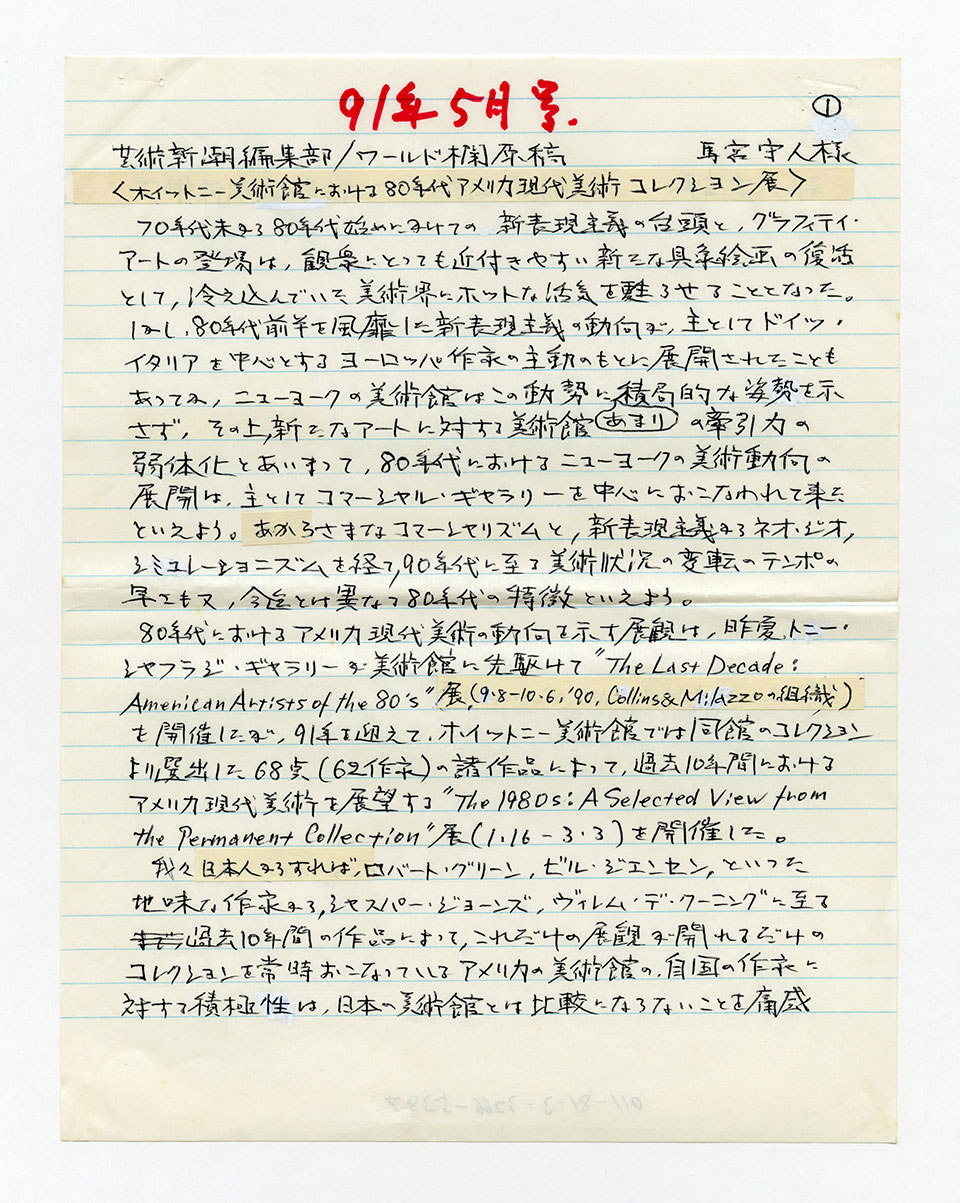 91年5月号.
①
芸術新潮編集部/ワールド欄原稿 馬宮守人様
<ホイットニー美術館における80年代アメリカ現代美術コレクション展>
70年代末から80年代始めにかけての新表現主義の台頭と,グラフィティ・
アートの登場は,観衆にとっても近付きやすい新たな具象絵画の復活
として,冷え込んでいた美術界にホットな活気を甦らせることとなった。
しかし,80年代前半を風靡した新表現主義の動向が,主としてドイツ・
イタリアを中心とするヨーロッパ作家の主動のもとに展開されたことも
あってか,ニューヨークの美術館はこの動勢に積局的な姿勢を示
さず,その上,新たなアートに対する美術館 あまり の牽引力の
弱体化とあいまって,80年代におけるニューヨークの美術動向の
展開は,主としてコマーシャル・ギャラリーを中心におこなわれて来た
といえよう。あからさまなコマーシャリズムと,新表現主義からネオ・ジオ,
シミュレーショニズムを経て,90年代に至る美術状況の変転のテンポの
早さも又,今迄とは異なる80年代の特徴といえよう。
80年代におけるアメリカ現代美術の動向を示す展観は,昨夏,トニー・
シャフラジ・ギャラリーが美術館に先駆けて"The Last Decade:
American Artists of the 80's"展(9・8-10・6,'90, Collins & Milazzoの組織)
を開催したが,91年を迎えて,ホイットニー美術館では同館のコレクション
より選出した68点(62作家)の諸作品によって,過去10年間における
アメリカ現代美術を展望する"The 1980s: A Selected View from
the Permanent Collection"展(1・16-3・3)を開催した。
我々日本人からすれば,ロバート・グリーン,ビル・ジェンセン,といった
地味な作家から,ジャスパー・ジョーンズ,ヴィレム・デ・クーニングに至る
過去10年間の作品によって,これだけの展観が開れるだけの
コレクションを常時おこなっているアメリカの美術館の,自国の作家に
対する積極性は,日本の美術館とは比較にならないことを痛感